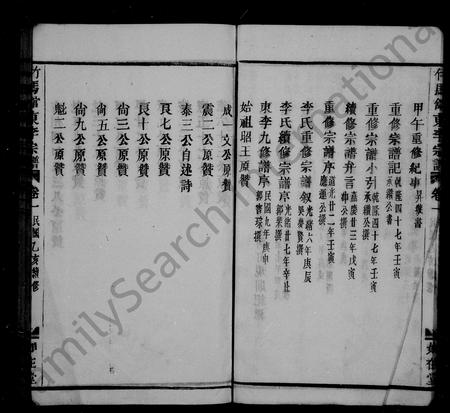 竹馬館東李宗譜 卷一
甲午重修紀事 昇燮書
重修宗譜記 乾隆四十七年壬寅 承纘公書
重修宗譜小引 乾隆四十七年壬寅 承纘公撰
續修宗譜弁言 嘉慶廿三年戊寅
重修宗譜序 道光廿二年壬寅
李氏重修宗譜叙 光緒六年庚辰
李氏續修宗譜序 光緒廿七年辛丑
東李九修譜序 民國九年庚申
始祖昭王原贊
成一文公原贊
震二公原贊
泰三公自述詩
艮七公原贊
艮十公原贊
尙三公原贊
尙五公原贊
尙九公原贊
魁二公原贊
竹馬館東李宗譜 卷一 民國乙亥續修
如在堂
FamilySearch International